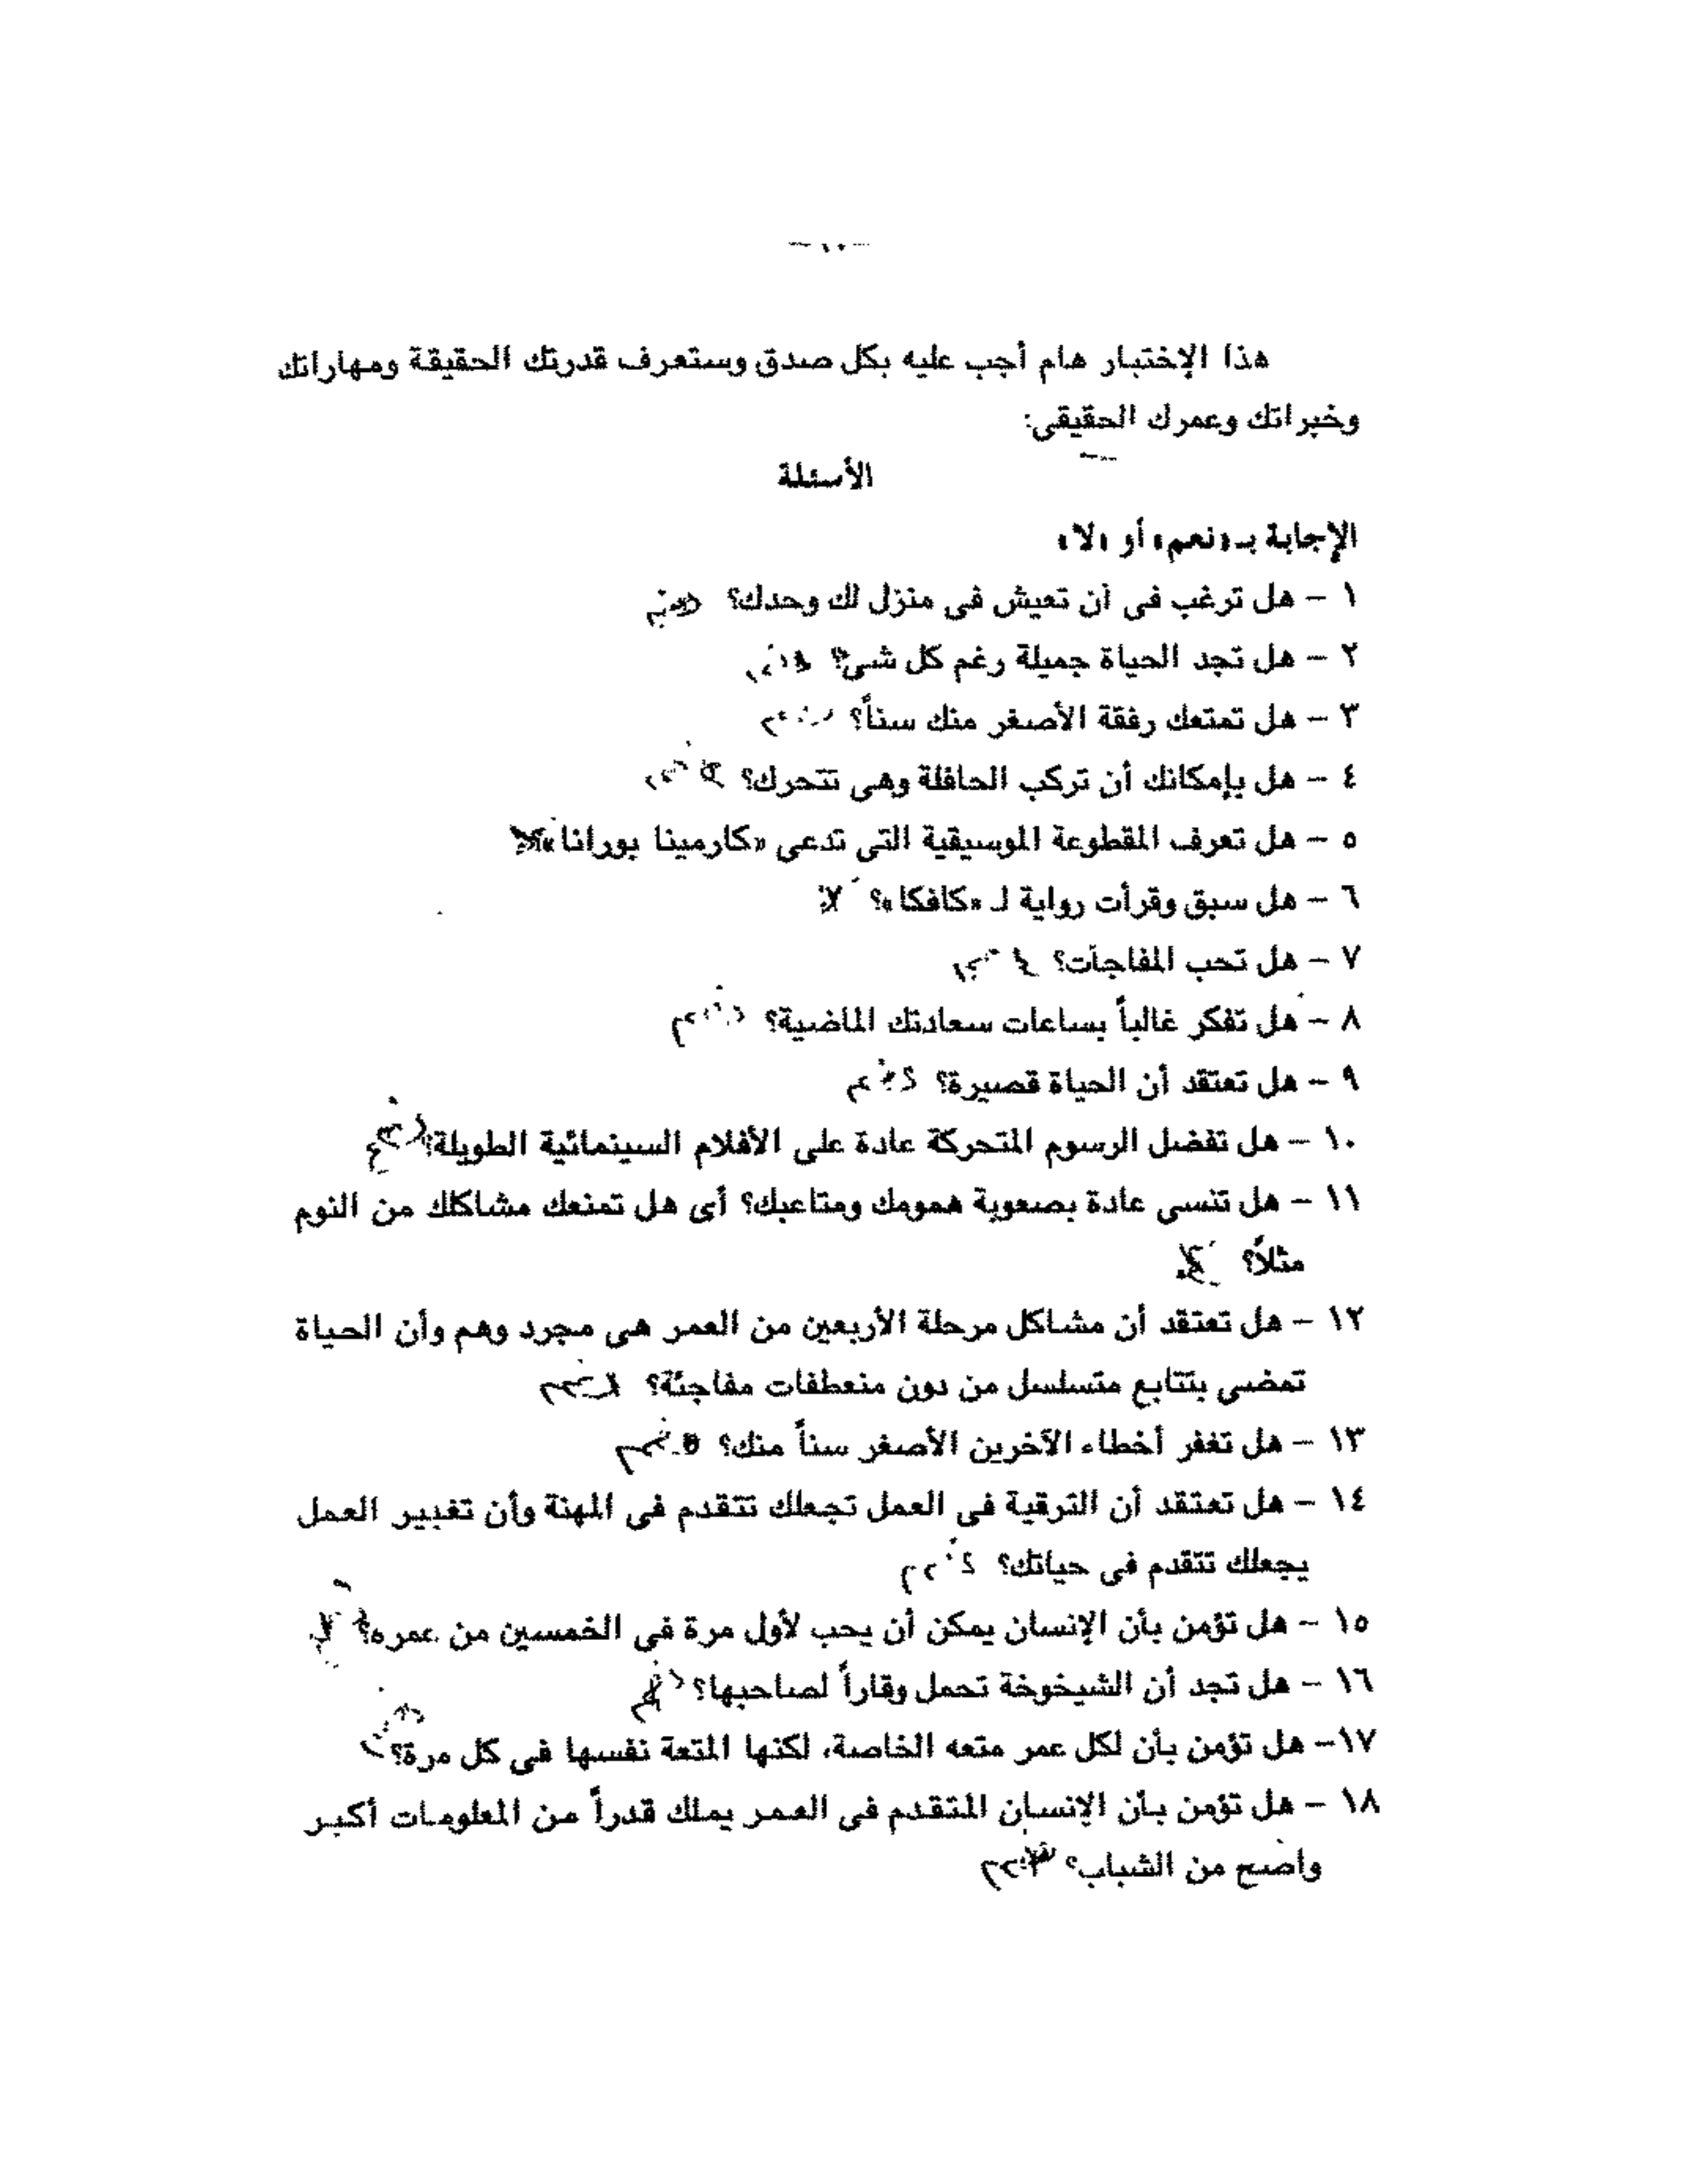 -١٠-
هذا الإختبار هام أجب عليه بكل صدق وستعرف قدرتك الحقيقة ومهاراتك
وخبراتك وعمرك الحقيقى:
الأسئلة
الإجابة بـ «نعم» أو «لا»
١ - هل ترغب فى أن تعيش فى منزل لك وحدك؟
٢ - هل تجد الحياة جميلة رغم كل شئ؟
٣ - هل تمتعك رفقة الأصغر منك سناً؟
٤ - هل بإمكانك أن تركب الحافلة وهى تتحرك؟
٥ - هل تعرف المقطوعة الموسيقية التى تدعى «كارمينا بورانا»
٦ - هل سبق وقرأت رواية لـ «كافكا»؟ لا
٧ - هل تحب المفاجآت؟
٨ - هل تفكر غالباً بساعات سعادتك الماضية؟
٩ - هل تعتقد أن الحياة قصيرة؟
١٠ - هل تفضل الرسوم المتحركة عادة على الأفلام السينمائية الطويلة؟
١١ - هل تنسى عادة بصعوبة همومك ومتاعبك؟ أى هل تمنعك مشاكلك من النوم
مثلاً؟
١٢ - هل تعتقد أن مشاكل مرحلة الأربعين من العمر هى مجرد وهم وأن الحياة
تمضى بتتابع متسلسل من دون منعطفات مفاجئة؟
١٣ - هل تغفر أخطاء الآخرين الأصغر سناً منك؟
١٤ - هل تعتقد أن الترقية فى العمل تجعلك تتقدم فى المهنة وأن تغيير العمل
يجعلك تتقدم فى حياتك؟
١٥ - هل تؤمن بأن الإنسان يمكن أن يحب لأول مرة فى الخمسين من عمره؟
١٦ - هل تجد أن الشيخوخة تحمل وقاراً لصاحبها؟
١٧- هل تؤمن بأن لكل عمر متعه الخاصة، لكنها المتعة نفسها فى كل مرة؟
١٨ - هل تؤمن بأن الإنسان المتقدم فى العمر يملك قدراً من المعلومات أكبر
واضح من الشباب؟